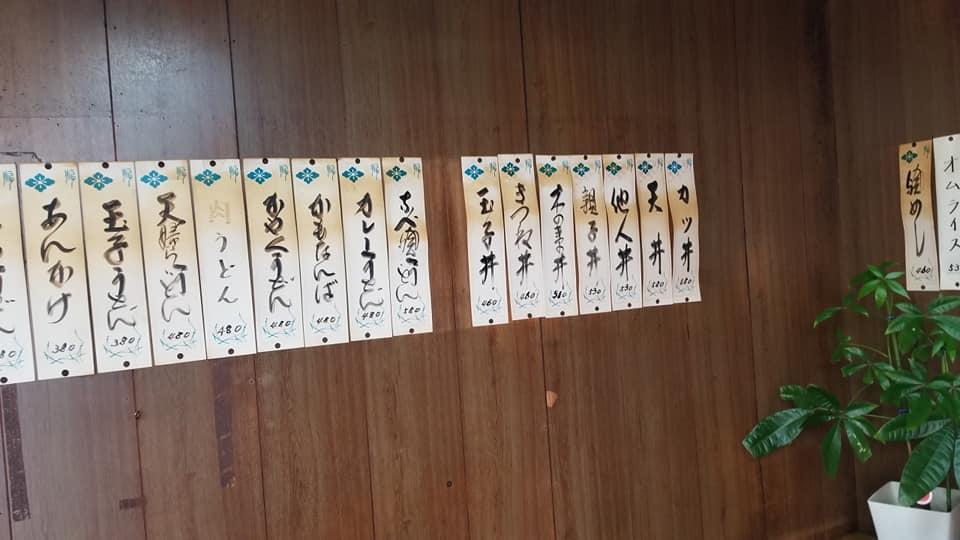 オムライス
焼めし
460
カツ丼
天丼
他人丼
530
親子丼
530
木の葉丼
きつね丼
玉子丼
460
なべ焼うどん
580
カレーうどん
480
かもなんば
480
かやくうどん
480
肉うどん
480
天婦らうどん
480
玉子うどん
380
あんかけ
380